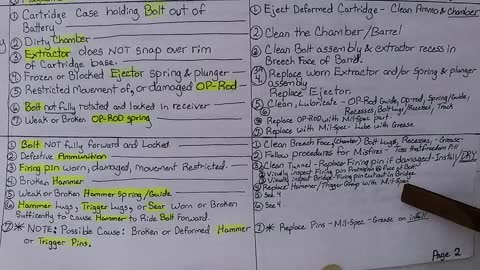 ① Cartridge Case holding Bolt out of
Battery
② Dirty Chamber
③ Extractor does NOT snap over rim
of Cartridge base.
④ Frozen or Blocked Ejector spring & plunger
⑤ Restricted Movement of, or damaged OP-Rod
⑥ Bolt not fully rotated and locked in receiver
⑦ Weak or Broken OP-ROD spring
① Eject Deformed Cartridge - Clean Ammo & Chamber
② Clean the Chamber/Barrel
③ Clean Bolt assembly & extractor recess in
Breech Face of Barrel.
④ Replace Worn Extractor and/or Spring & plunger
assembly
Replace Ejector.
⑤ Clean, Lubricate - OP-Rod Guide, Op-rod, Spring/Guide,
Recesses, Bolt Lugs/Receiver, Track
⑥ Replace OP-ROD with Mil-Spec part.
⑦ Replace with Mil-Spec - Lube with Grease.
① Bolt not fully forward and Locked
② Defective Ammunition
③ Firing pin worn, damaged, movement Restricted.
④ Broken Hammer
⑤ Weak or Broken Hammer Spring/Guide
⑥ Hammer Lugs, Trigger Lugs, or Sear Worn or Broken
Sufficently to cause Hammer to Ride Bolt forward.
⑦ * NOTE: Possible Cause: Broken or Deformed Hammer
or Trigger Pins.
① Clean Breech Face, (chamber) Bolt Lugs, Recesses, - Grease -
② Follow procedures for Misfires
③ Clean Tunnel - Replace Firing pin if damaged - Install/DRY
Visually inspect Firing pin Protrusion @ Face of Bolt
Visually inspect Bridge - Firing pin Cutout in Bridge
④ Replace Hammer/Trigger Group with Mil-Spec
⑤ See 4
⑥ See 4
⑦ * Replace Pins - Mil-Spec - Grease on install.
Page 2